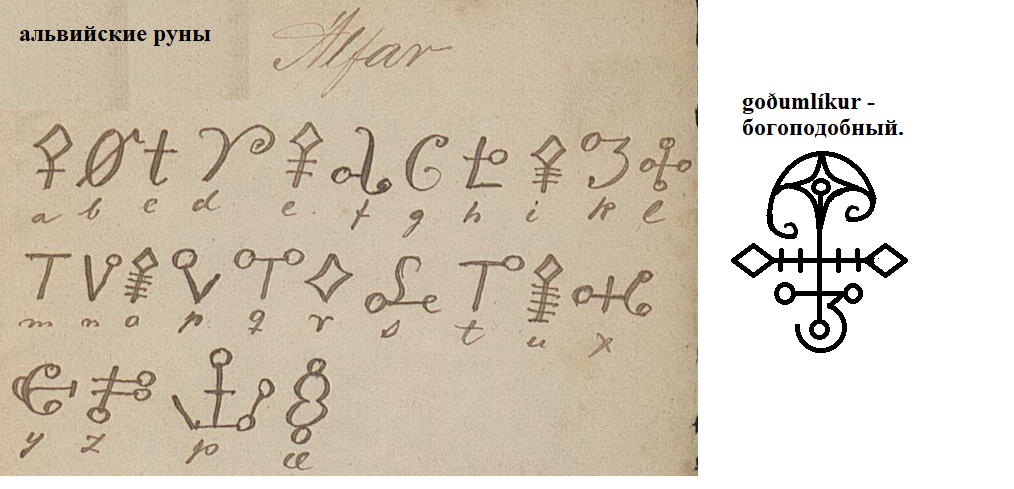 альвийские руны
Alfar
a b c d e f g h i k l
m n o p q r s t u x
y z þ æ
goðumlíkur -
богоподобный.